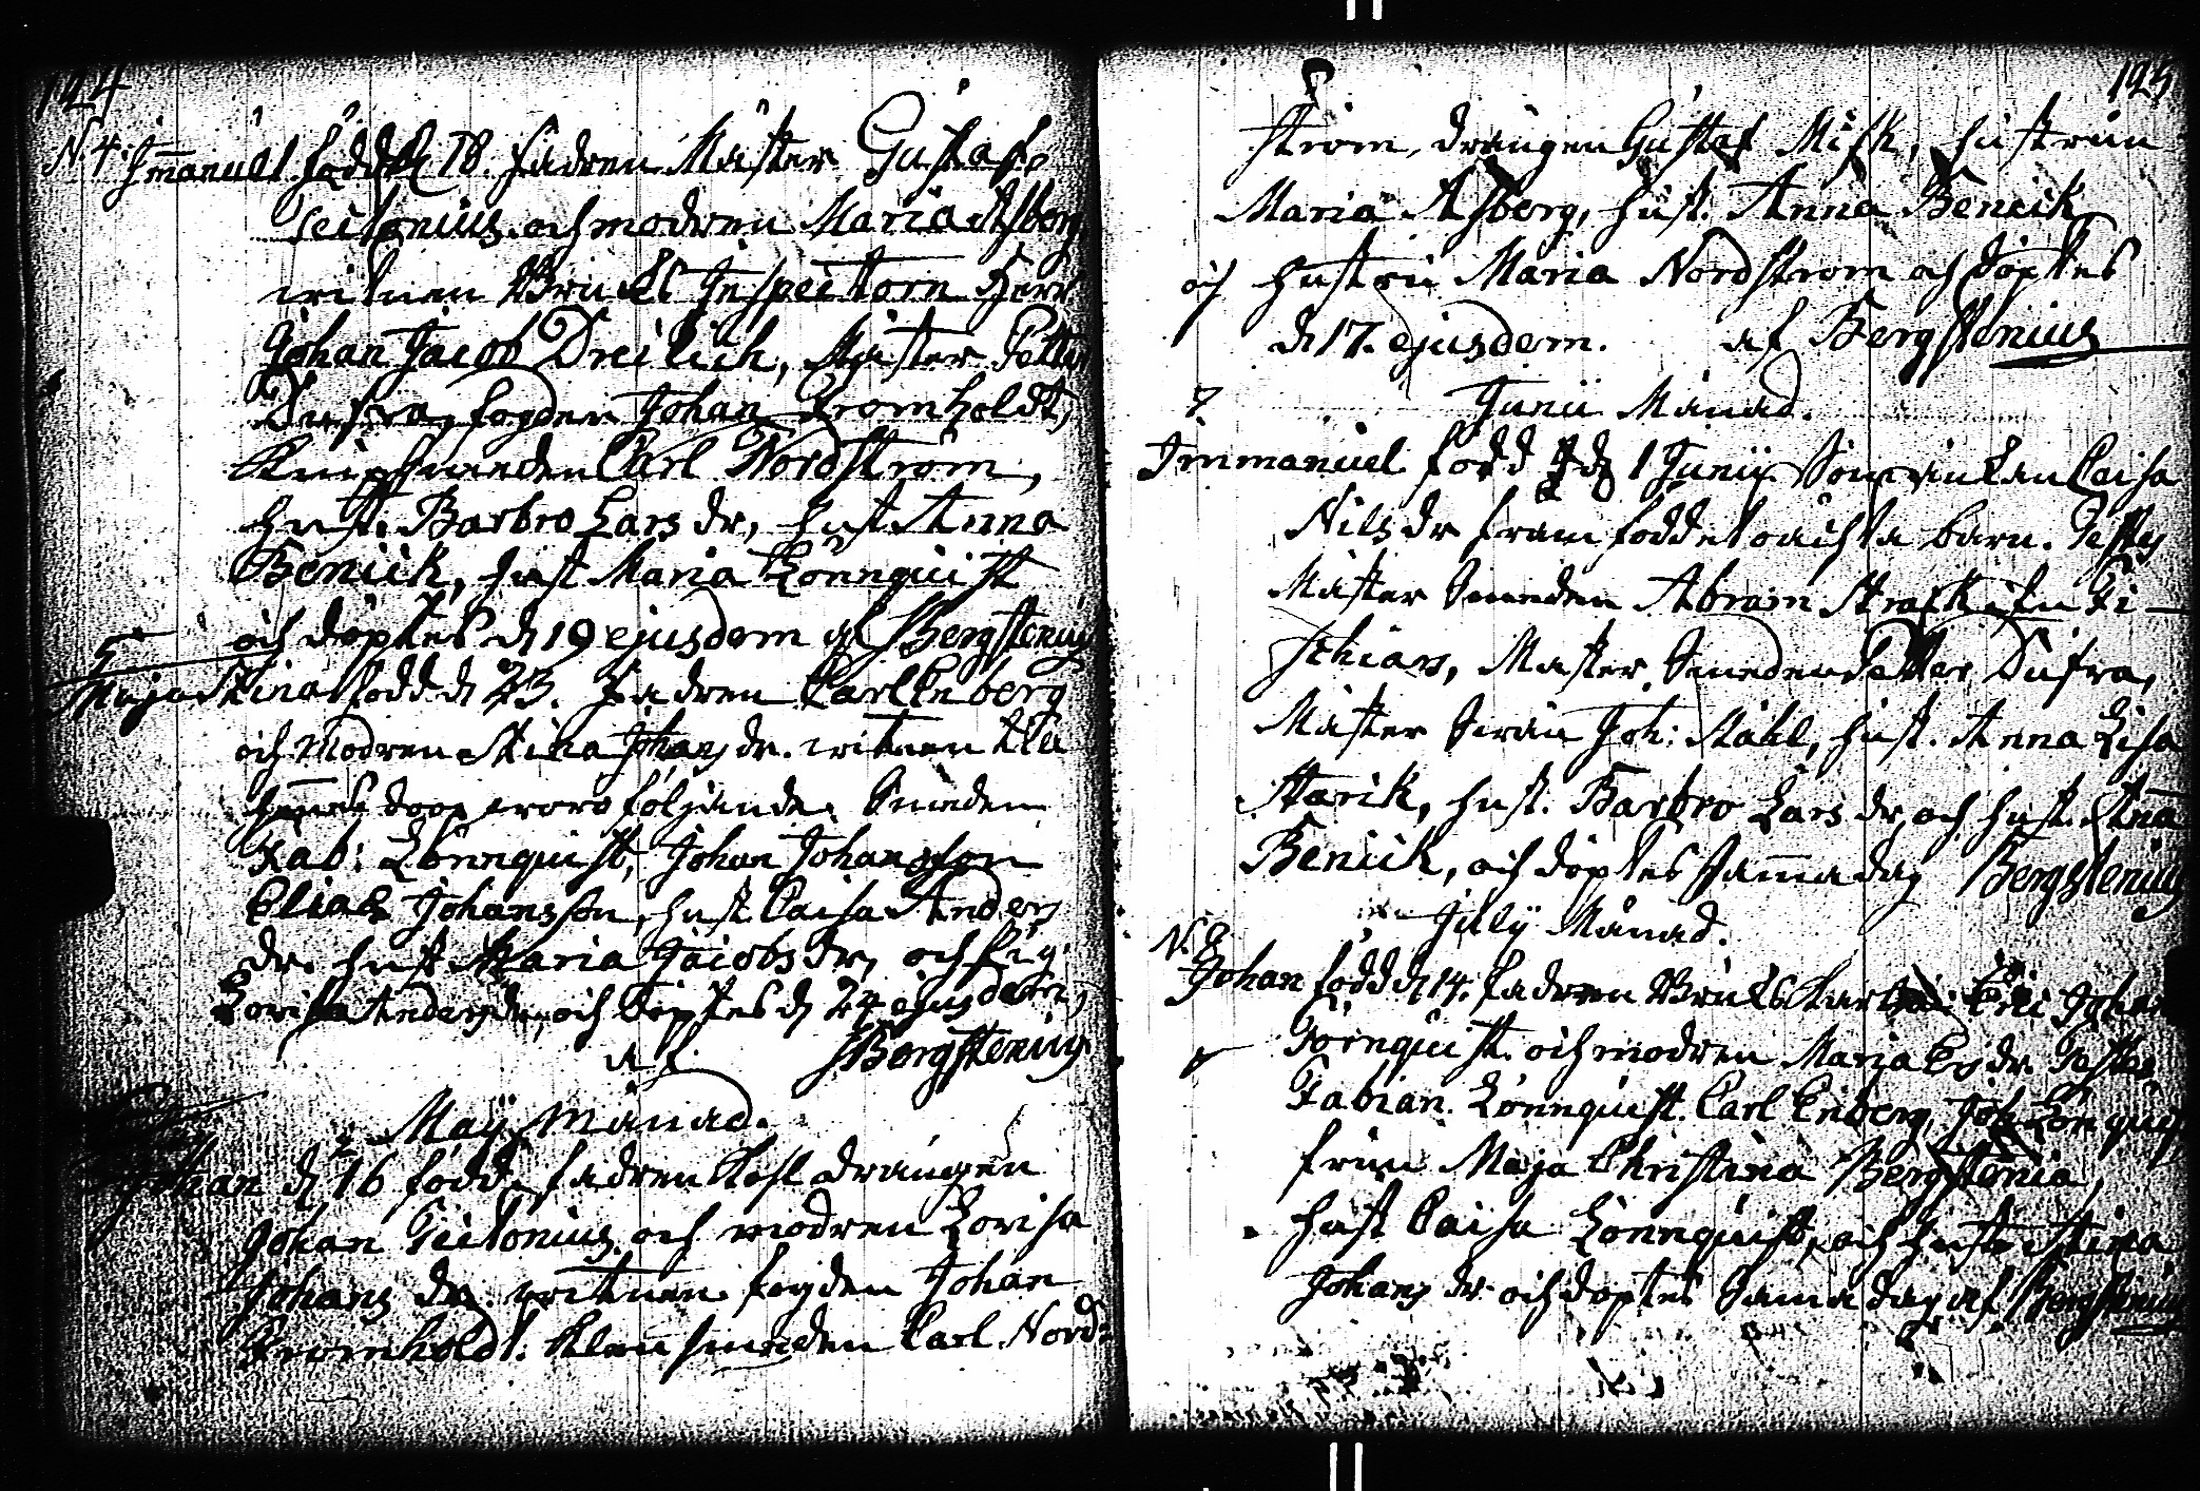 124
N. 4. Jm̄anuel född d 18. fadren Mäster Gustaf
Teitonius och modren Maria Asberg
witnen Bruks Inspectorn Herr
Johan Jacob Dreilick, Mäster Petter
Dufva, fogden Johan Fromholdt,
Knipsmeden Carl Nordström,
hust. Barbro Lars dr, hust Anna
Benick, hust Maria Lönnquist
och döptes d 19 ejusdem af Bergstenius
5
Maja Stina född d 23. fadren Carl Enberg
och modren Stina Johans dr. witnen till
hennes doop woro följande. Smeden
Fab: Lönnquist, Johan Johansson
Elias Johansson, hust Caisa Anders
dr. hust Maria Jacobs dr, och Pig.
Lovisa Anders dr, och döptes d 24 ejusdem,
af Bergstenius
Maÿ Månad.
Johan d 16 född. fadren drängen
Johan Teitonius och modren Lovisa
Johans dr. witnen fogden Johan
Fromholdt. smeden Carl Nord-
125
ström, drängen Gustaf Misk, hustrun
Maria Asberg, hust. Anna Beneik
och hustru Maria Nordström och döptes
d 17. ejusdem. af Bergstenius
7 Junii Månad.
Immanuel född d 1 Junii Som Caisa
Nils dr fram födde oächta barn. Testes
Mäster Smeden Abram
Mäster Smeden Petter Dufva,
Mäster Joh: Ståhl, hust. Anna Lisa
Starck, hust. Barbro Lars dr, och hust. Anna
Benick, och döptes samma dag Bergstenius
Julÿ Månad.
N. 8
Johan född d 14. fadren Bruks Eric Johan
Törnquist. och modren Marja dr. Testes
Fabian Lönnquist. Carl Enberg, Joh Lönquist,
frun Maja Christina Bergstenia,
hust Caisa Lönnquist, och hustr Stina
Johans dr och döptes Samma dag af Bergstenius